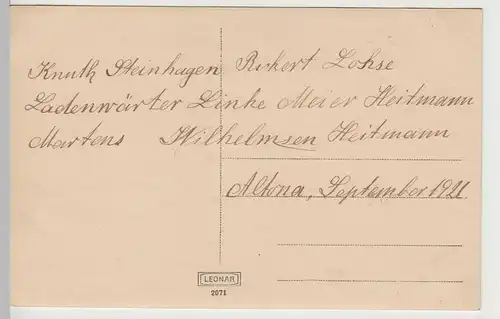 Knuth Steinhagen Rickert Lohse
Ladenwärter Linke Meier Heitmann
Martens Wilhelmsen Heitmann
Altona, September 1921
LEONAR
2071